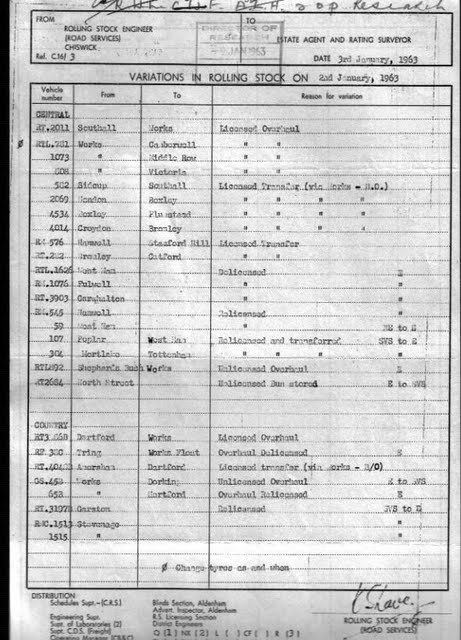 FROM
TO
ROLLING STOCK ENGINEER
(ROAD SERVICES)
CHISWICK
Ref. C16/ 3
DIRECTOR OF
RESEARCH
JAN 1963
ESTATE AGENT AND RATING SURVEYOR
DATE 3rd January, 1963
VARIATIONS IN ROLLING STOCK ON 2nd January, 1963
Vehicle number From To Reason for variation
CENTRAL
RT.2011 Southall Works Licensed Overhaul
Ø RTL.781 Works Camberwell " "
1073 " Middle Row " "
608 " Victoria " "
582 Sidcup Southall Licensed Transfer (via Works - B.O.)
2069 Hendon Bexley " " " "
4534 Bexley Plumstead " " " "
4014 Croydon Bromley " " " "
RM.576 Hanwell Stamford Hill Licensed Transfer
RT.222 Bromley Catford " "
RTL.1626 West Ham Delicensed E
RM.1076 Fulwell " "
RT.3903 Carshalton " "
RM.545 Hanwell Relicensed "
59 West Ham " NS to E
107 Poplar West Ham Relicensed and transferred SVS to E
304 Mortlake Tottenham " " " "
RTL892 Shepherd's Bush Works Unlicensed Overhaul E
RT2684 North Street Unlicensed Bus stored E to SVS
COUNTRY
Dartford Works Licensed Overhaul
Tring Works Float Overhaul Delicensed E
Amersham Dartford Licensed transfer (via Works - B/O)
GS.45B Works Dorking Unlicensed Overhaul E to SVS
65B " Hertford Overhaul Relicensed E
RT.3197B Garston Relicensed SVS to E
RMC.1513 Stevenage " "
1515 " " "
Ø Change tyres as and when
DISTRIBUTION
Schedules Supt.-(C.R.S.)
Engineering Supt.
Supt. of Laboratories (2)
Supt. C.D.S. (Freight)
Operating Manager (CB&C)
Blinds Section, Aldenham
Advert. Inspector, Aldenham
R.S. Licensing Section
District Engineers
ROLLING STOCK ENGINEER
(ROAD SERVICES)